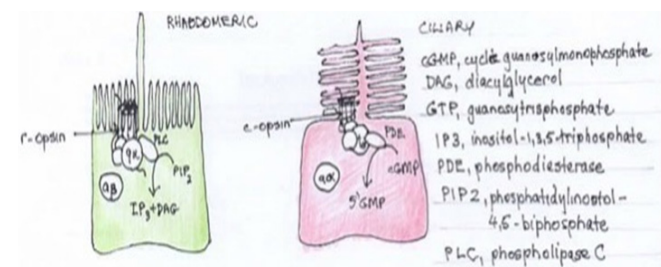 RHABDOMERIC
r-opsin
qα
PLC
PIP2
IP3+DAG
CILIARY
c-opsin
PDE
cGMP
5'GMP
cGMP, cyclic guanosylmonophosphate
DAG, diacylglycerol
GTP, guanosytrisphosphate
IP3, inositol-1,3,5-triphosphate
PDE, phosphodiesterase
PIP2, phosphatidylinostol-
4,5-biphosphate
PLC, phospholipase C